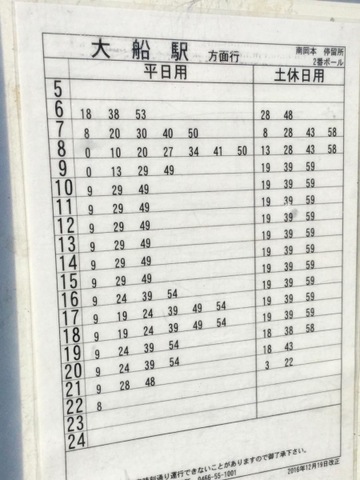 大船駅 方面行
南岡本 停留所
2番ポール
平日用 土休日用
5
6 18 38 53 28 48
7 8 20 30 40 50 8 28 43 58
8 0 10 20 27 34 41 50 13 28 43 58
9 0 13 29 49 19 39 59
10 9 29 49 19 39 59
11 9 29 49 19 39 59
12 9 29 49 19 39 59
13 9 29 49 19 39 59
14 9 29 49 19 39 59
15 9 29 49 19 39 59
16 9 24 39 54 19 39 59
17 9 19 24 39 49 54 19 39 59
18 9 19 24 39 49 54 19 39 59
19 9 24 39 54 18 38 58
20 9 24 39 54 18 43
21 9 28 48 3 22
22 8
23
24
通り運行できないことがありますので御了承下さい。
0466-55-1001
2016年12月19日改正